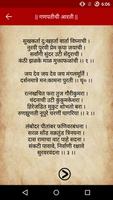 6:06
|| गणपतीची आरती ||
सुखकर्ता दुःखहर्ता वार्ता विघ्नाची ।
नुरवी पुरवी प्रेम कृपा जयाची ।
सर्वांगी सुंदर उटी शेंदुराची ।
कंठी झळके माळ मुक्ताफळांची ।। १ ।।
जय देव जय देव जय मंगलमूर्ति ।
दर्शनमात्रे मनःकामना पुरती ।। धृ ।।
रत्नखचित फरा तुज गौरीकुमरा ।
चंदनाची उटी कुमकुमकेशरा ।
हिरेजडित मुकुट शोभतो बरा ।
रुणझुणती नूपुरे चरणी घागरिया ।। २ ।।
लंबोदर पीतांबर फणिवरबंधना ।
सरळ सोंड वक्रतुंड त्रिनयना ।
दास रामाचा वाट पाहे सदना ।
संकटी पावावे, निर्वाणी रक्षावे
सुरवरवंदना ।। ३ ।।